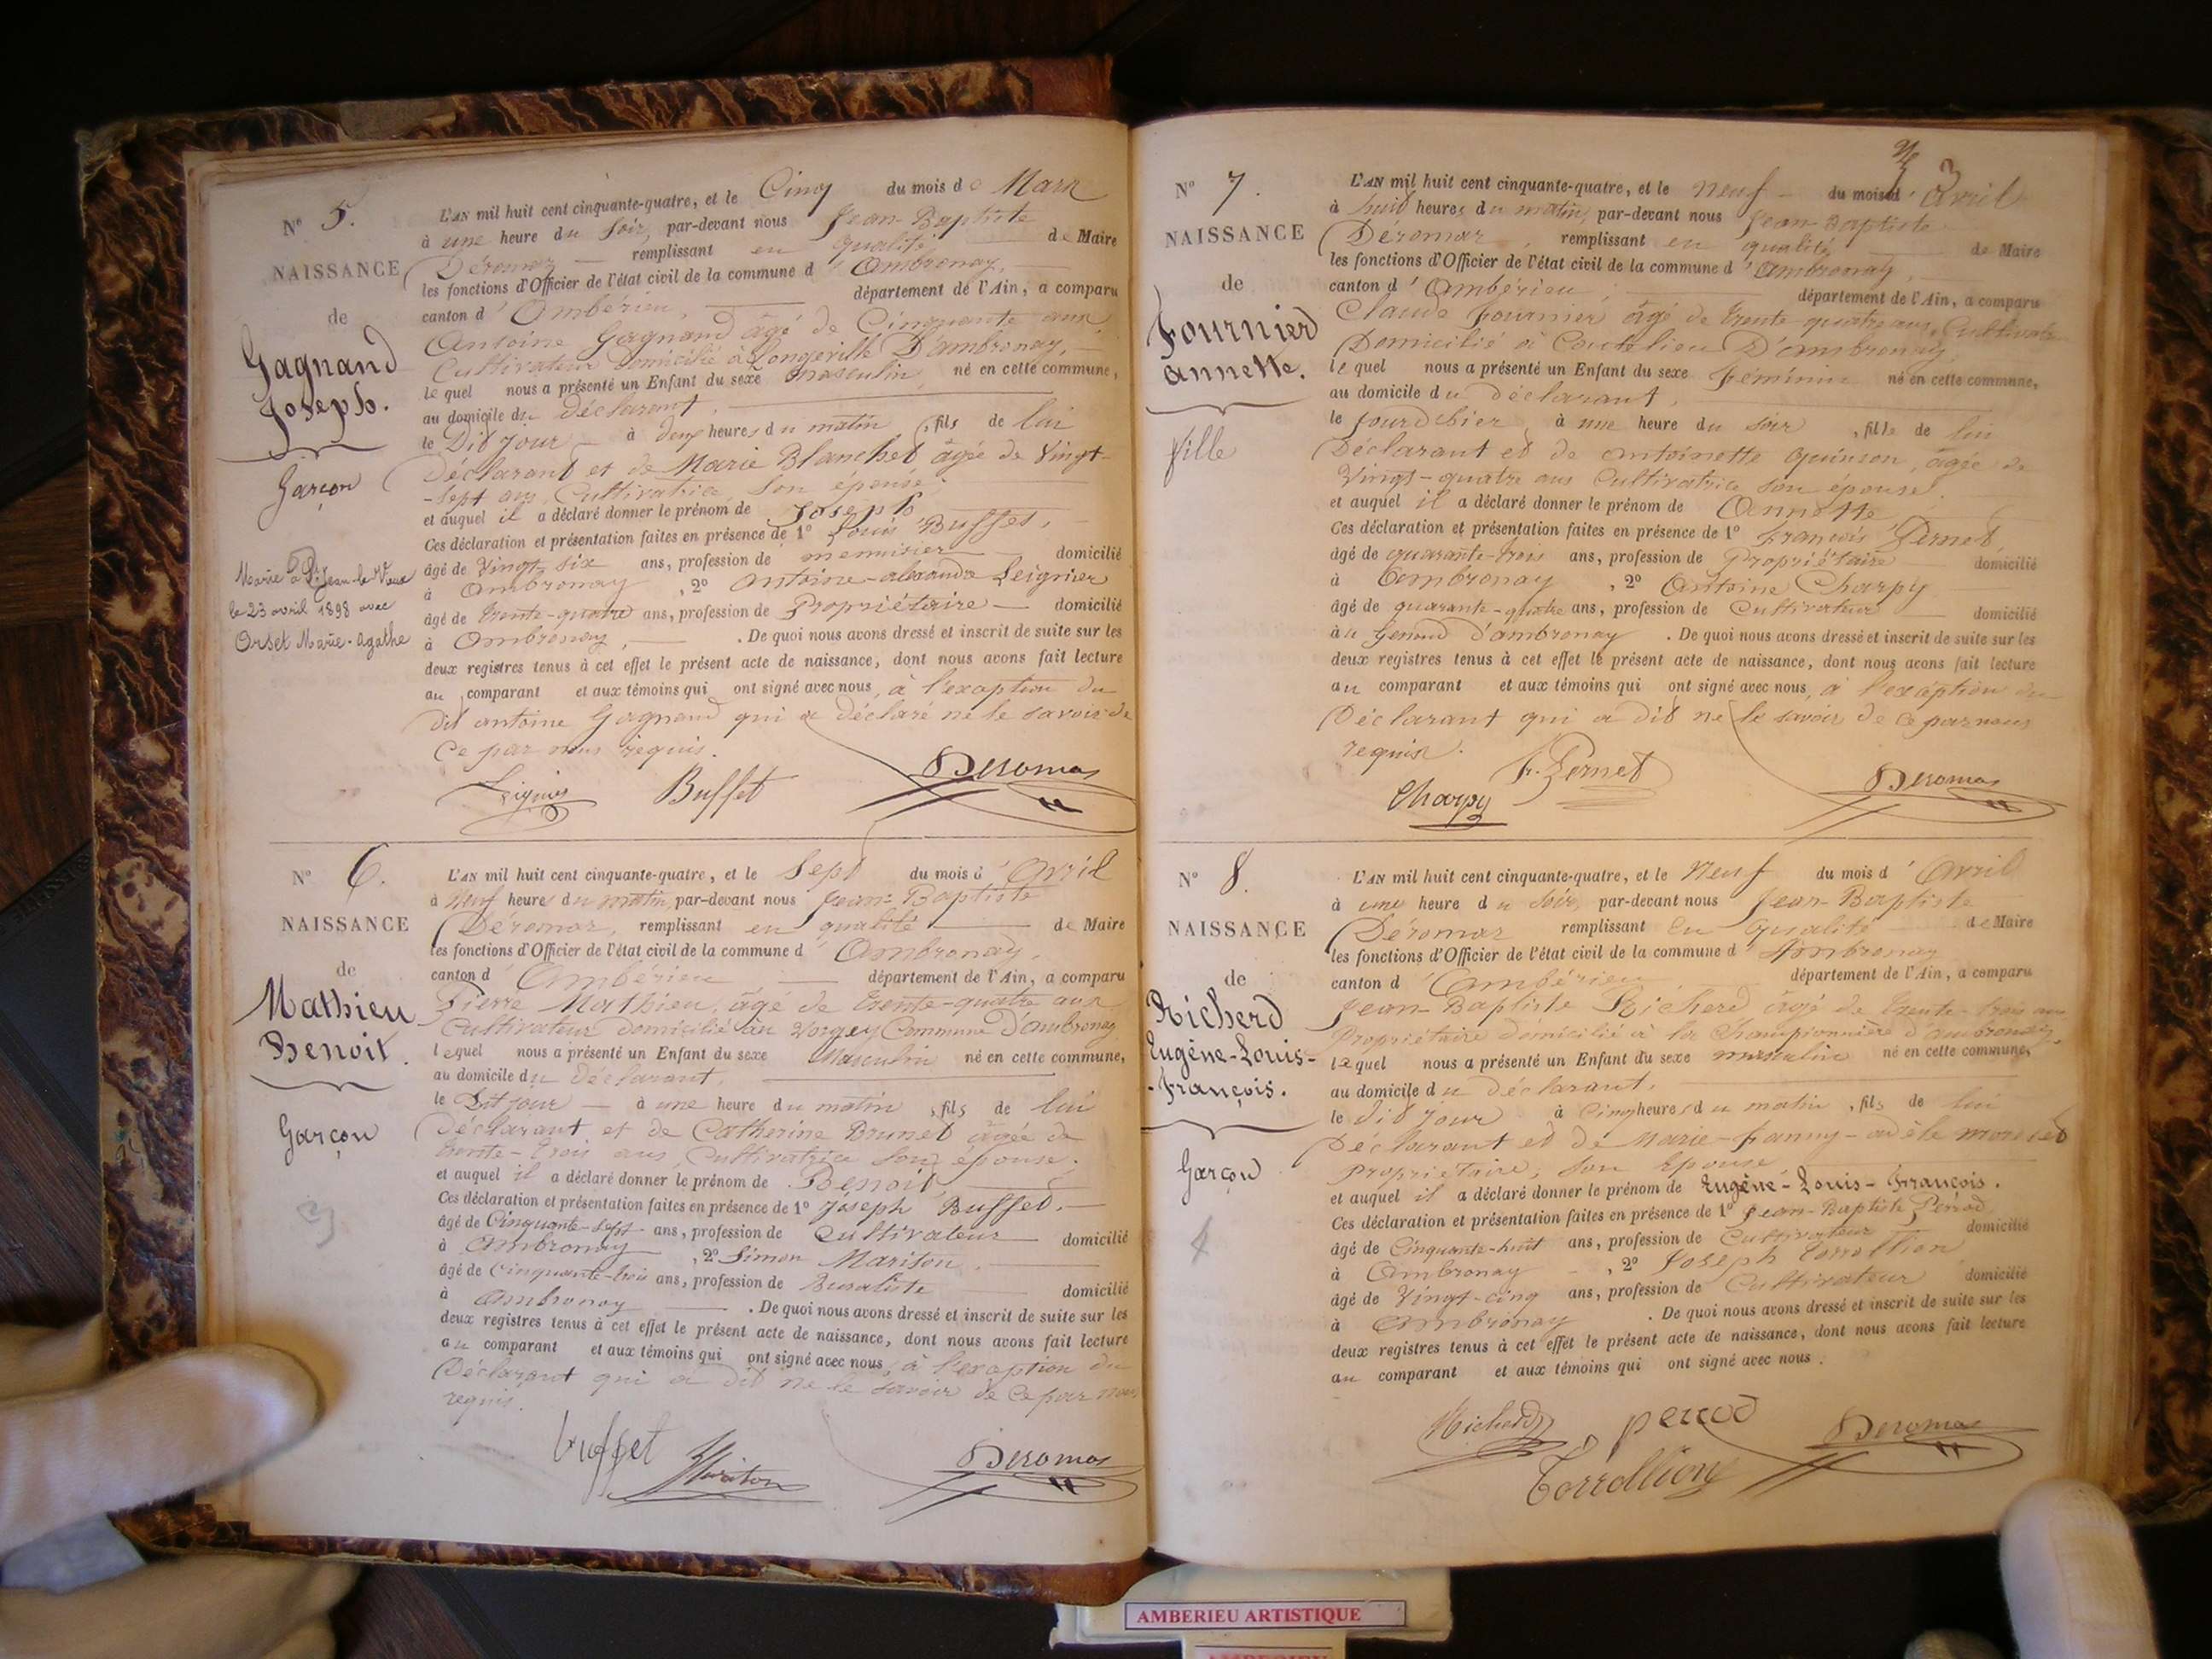 N° 5.
NAISSANCE
de
Gagnand
Joseph.
Garçon
Marié à St Jean-le-Vieux
le 23 avril 1898 avec
Orset Marie-Agathe
L'AN mil huit cent cinquante-quatre, et le Cinq du mois de Mars
à une heure du soir, par-devant nous Jean-Baptiste
Déromas remplissant en qualité de Maire
les fonctions d'Officier de l'état civil de la commune d'Ambronay,
canton d'Ambérieu, département de l'Ain, a comparu
Antoine Gagnand âgé de Cinquante ans,
Cultivateur domicilié à Longeville D'ambronay,
lequel nous a présenté un Enfant du sexe masculin, né en cette commune,
au domicile du déclarant,
le Dit jour à deux heures du matin, fils de lui
Déclarant et de Marie Blanchet âgée de Vingt-
-sept ans, Cultivatrice son épouse,
et auquel il a déclaré donner le prénom de Joseph
Ces déclaration et présentation faites en présence de 1° Louis Buffet,
âgé de Vingt six ans, profession de menuisier domicilié
à Ambronay, 2° Antoine-alexandre Leignier
âgé de trente-quatre ans, profession de Propriétaire domicilié
à Ambronay, . De quoi nous avons dressé et inscrit de suite sur les
deux registres tenus à cet effet le présent acte de naissance, dont nous avons fait lecture
au comparant et aux témoins qui ont signé avec nous, à l'exception du
dit antoine Gagnand qui a déclaré ne le savoir de
Ce par nous requis.
Buffet Deromas
N° 6.
NAISSANCE
de
Mathieu
Benoit.
Garçon
3
L'AN mil huit cent cinquante-quatre, et le Sept du mois d'Avril
à Neuf heures du matin, par-devant nous Jean-Baptiste
Déromas, remplissant en qualité de Maire
les fonctions d'Officier de l'état civil de la commune d'Ambronay,
canton d'Ambérieu département de l'Ain, a comparu
Pierre Mathieu, âgé de trente-quatre ans
Cultivateur domicilié au Vorgey Commune D'ambronay
lequel nous a présenté un Enfant du sexe Masculin né en cette commune,
au domicile du déclarant,
le Dit jour à une heure du matin, fils de lui
Déclarant et de Catherine Brunet âgée de
trente-trois ans, Cultivatrice son épouse,
et auquel il a déclaré donner le prénom de Benoit,
Ces déclaration et présentation faites en présence de 1° Joseph Buffet,
âgé de Cinquante-sept ans, profession de Cultivateur domicilié
à Ambronay, 2° Simon Mariton,
âgé de Cinquante-trois ans, profession de Buraliste domicilié
à Ambronay . De quoi nous avons dressé et inscrit de suite sur les
deux registres tenus à cet effet le présent acte de naissance, dont nous avons fait lecture
au comparant et aux témoins qui ont signé avec nous, à l'exception du
Déclarant qui a dit ne le savoir de Ce par nous
requis.
buffet Mariton Deromas
3
N° 7.
NAISSANCE
de
Fournier
annette.
fille
L'AN mil huit cent cinquante-quatre, et le Neuf du mois d'Avril
à huit heures du matin, par-devant nous Jean-Baptiste
Déromas, remplissant en qualité de Maire
les fonctions d'Officier de l'état civil de la commune d'Ambronay,
canton d'Ambérieu, département de l'Ain, a comparu
Claude Fournier âgé de trente-quatre ans, Cultivateur
Domicilié à D'ambronay,
lequel nous a présenté un Enfant du sexe Féminin né en cette commune,
au domicile du déclarant,
le jour d'hier à une heure du soir, fille de lui
Déclarant et de antoinette quinson, âgée de
Vingt-quatre ans Cultivatrice son épouse,
et auquel il a déclaré donner le prénom de Annette
Ces déclaration et présentation faites en présence de 1° François Pernet,
âgé de quarante-trois ans, profession de Propriétaire domicilié
à Ambronay, 2° Antoine Charpy
âgé de quarante-quatre ans, profession de Cultivateur domicilié
au Genoud d'ambronay . De quoi nous avons dressé et inscrit de suite sur les
deux registres tenus à cet effet le présent acte de naissance, dont nous avons fait lecture
au comparant et aux témoins qui ont signé avec nous, à l'exception du
Déclarant qui a dit ne le savoir de ce par nous
requis.
Charpy F. Pernet Deromas
N° 8.
NAISSANCE
de
Richerd
Eugène-Louis-
-François.
Garçon
4
L'AN mil huit cent cinquante-quatre, et le Neuf du mois d'Avril
à une heure du soir, par-devant nous Jean-Baptiste
Déromas remplissant en qualité de Maire
les fonctions d'Officier de l'état civil de la commune d'Ambronay
canton d'Ambérieu département de l'Ain, a comparu
Jean-Baptiste Richerd âgé de trente-trois ans
Propriétaire domicilié à la Championnière d'ambronay,
lequel nous a présenté un Enfant du sexe masculin né en cette commune,
au domicile du déclarant,
le dit jour à Cinq heures du matin, fils de lui
Déclarant et de Marie-fanny-adèle
propriétaire, son épouse
et auquel il a déclaré donner le prénom de Eugène-Louis-François.
Ces déclaration et présentation faites en présence de 1° Jean-Baptiste Perrod
âgé de Cinquante-huit ans, profession de Cultivateur domicilié
à Ambronay, 2° Joseph Torrollion
âgé de Vingt-cinq ans, profession de Cultivateur domicilié
à Ambronay . De quoi nous avons dressé et inscrit de suite sur les
deux registres tenus à cet effet le présent acte de naissance, dont nous avons fait lecture
au comparant et aux témoins qui ont signé avec nous.
Richerd perrod Deromas
Torrollion
AMBERIEU ARTISTIQUE